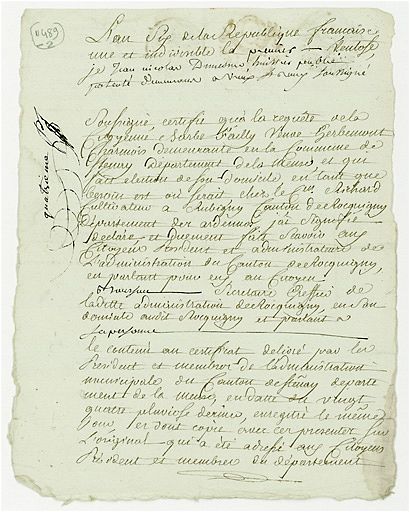 1489
2
L'an Six de la République française
une et indivisible le premier Ventose
je Jean nicolas
patenté demeurant a
Soussigné certifie qu'a la requête de la
Citoyenne Barbe Vailly Veuve Gerbemont
Charmois demeurante en la Commune de
Stenay Département de la Meuse et qui
fait election de son domicile en tant que
besoin est ou serait chez le Cen Richard
Cultivateur a Rubigny Canton de Rocquigny
département des ardennes j'ai Signifié
declaré et duement fait Savoir aux
Citoyens Président et administrateurs de
L'administration du Canton de Rocquigny,
en parlant pour eux au Citoyen
Secretaire Greffier de
ladite administration de Rocquigny, en Son
domicile audit Rocquigny et parlant a
Sa personne
le contenu au certificat délivré par les
Président et membres de l'administration
municipale du Canton de Stenay departe
ment de la meuse, en datte du vingt
quatre pluviose dernier, enregitré le même
Jour, et dont copie avec ces presentes Sur
L'original qui a été adressé aux Citoyens
Président et membres du département
quatrieme